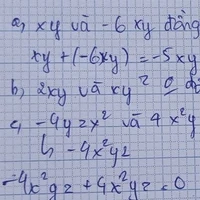 a, xy và -6 xy đồng
xy + (-6xy) = -5 xy
b, 2xy và xy² 0 đồ
c, -4yzx² và 4 x²y
↳ -4x²yz
-4x²yz + 4x²yz = 0